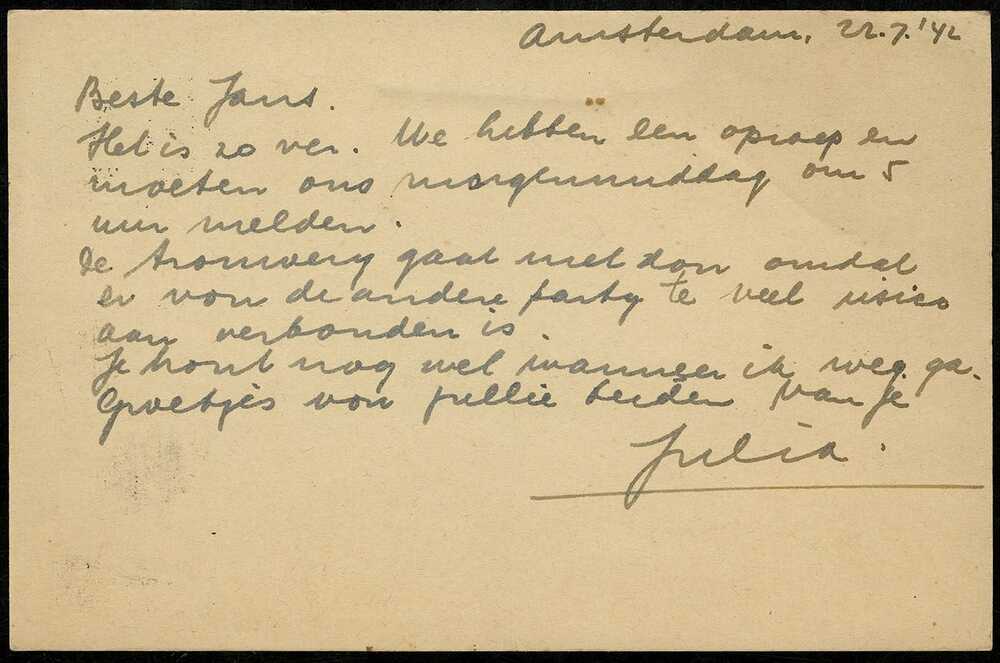 Amsterdam, 22.7.'42
Beste Jans.
Het is zo ver. We hebben een oproep en
moeten ons morgenmiddag om 5
uur melden.
De trouwery gaat niet don omdat
er von de andere party te veel risico
aan verbonden is.
Je hort nog wel wanneer ik weg ga.
Groetjes von jullie beiden van je
Julia.